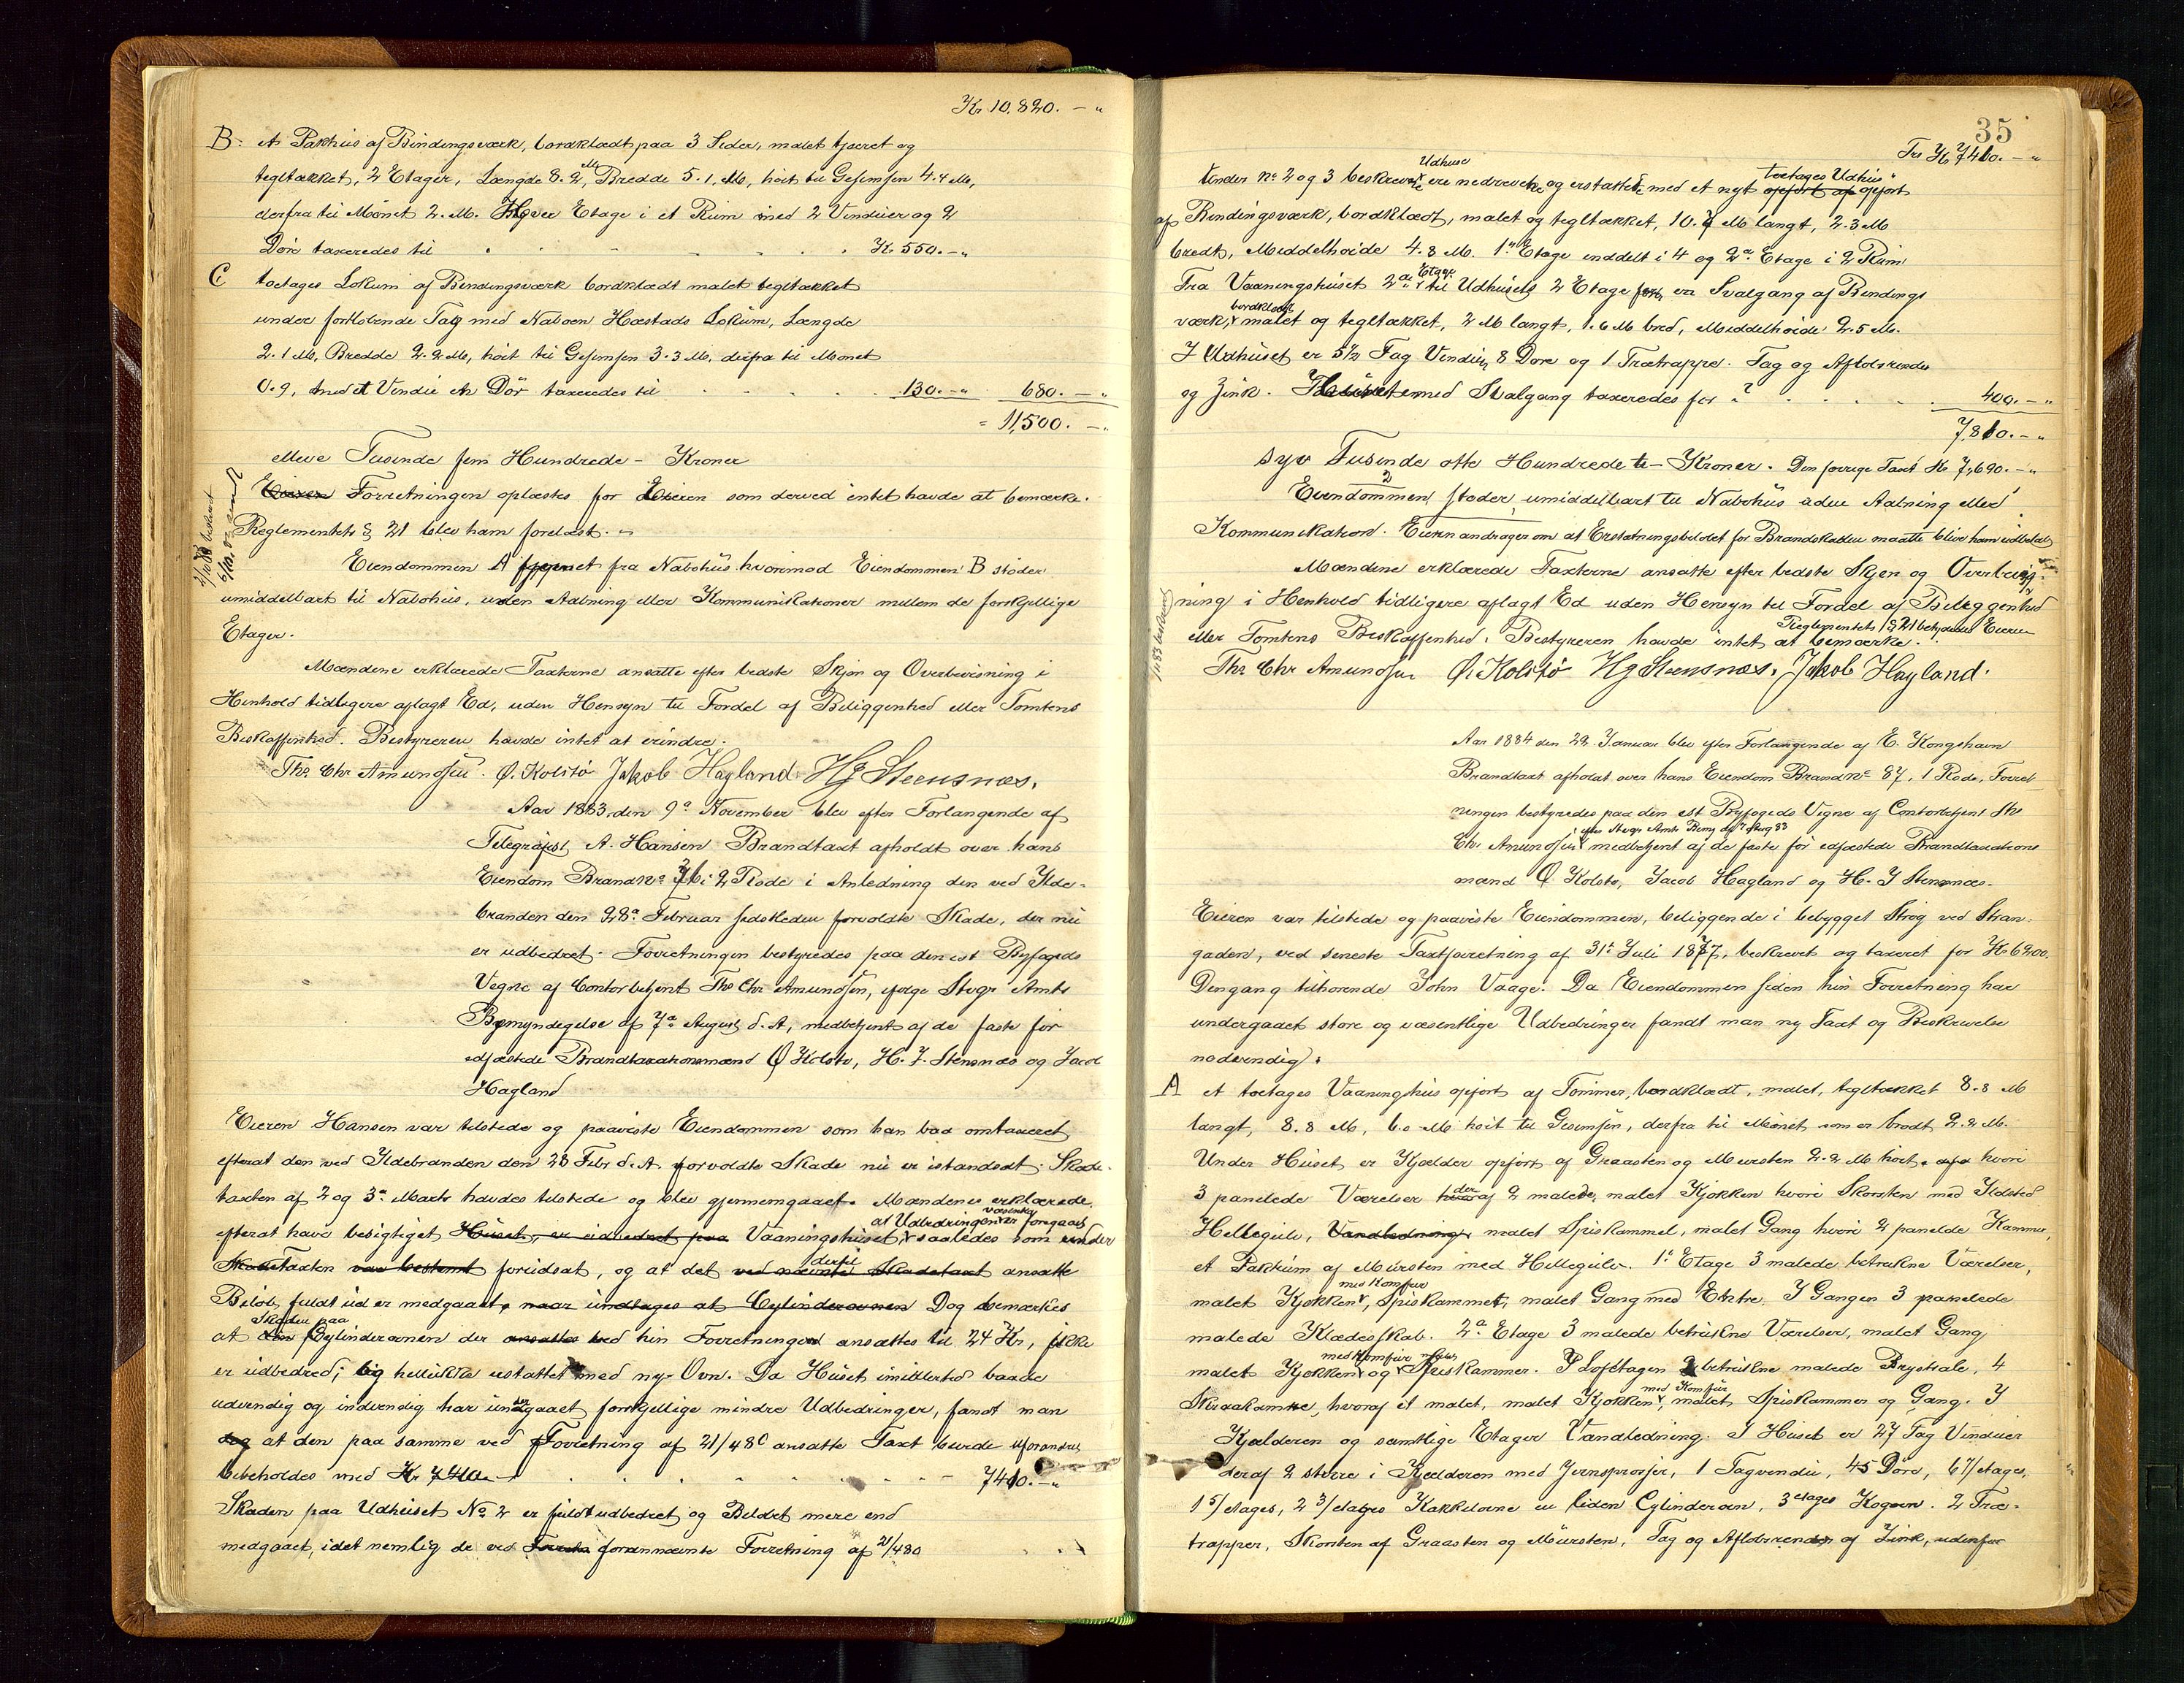 Kr 10,820. - "
B: et Pakhus af Bindingsværk, bordklædt paa 3 Sider, malet tjæret og
tegltækket, 2 Etager, Længde 8.2, M Bredde 5.1, M, höit til Gesimsen 4.4 M,
derfra til Mønet 2. M. Hver Etage i et Rum med 2 Vinduer og 2
Döre taxeredes til . . . . Kr 550. - "
C toetages Lokum af Bindingsværk bordklædt malet tegltækket
under fortløbende Tag med Naboen Hæstads Lokum, Længde
2.1 M, Bredde 2.2 M, höit til Gesimsen 3.3 M, derfra til Mønet
0.9, med et Vindu en Dör taxeredes til . . . 130. - " 680. - "
= 11,500. - "
elleve Tusinde fem Hundrede - Kroner
Eieren Forretningen oplæstes for Eieren som derved intet havde at bemærke.
Reglementets § 21 blev ham forelæst. "
Eiendommen A fjernet fra Nabohus hvorimod Eiendommen B støder
umiddelbart til Nabohus, uden Aabning eller Kommunikationer mellem de forskjellige
Etager.
Mændene erklærede Taxterne ansatte efter bedste Skjön og Overbevisning i
Henhold tidligere aflagt Ed, uden Hensyn til Fordel af Beliggenhed eller Tomtens
Beskaffenhed. Bestyreren havde intet at erindre.
Ths. Chr Amundsen. Ø. Kolstö Jakob Hagland HJ Steensnæs.
Aar 1883, den 9de November blev efter Forlangende af
Telegrafist A. Hansen Brandtaxt afholdt over hans
Eiendom Brand No 36 i 2 Rode i Anledning den ved Ilde-
branden den 28de Februar sidstleden forvoldte Skade, der nu
er udbedret. Forretningen bestyredes paa den cst Byfogeds
Vegne af Contorbetjent Ths Chr Amundsen, ifølge Stvgr Amts
Bemyndigelse af 7de August d. A, medbetjent af de faste før
edfæstede Brandtaxationsmænd Ø Kolstø, H. J. Stensnæs og Jacob
Hagland
Eieren Hansen var tilstede og paaviste Eiendommen som han bad omtaxeret
efterat den ved Ildebranden den 28 Febr d. A. forvoldte Skade nu er istandsat. Skade-
taxten af 2 og 3de Marts havdes tilstede og blev gjennemgaaet. Mændene erklærede
at Udbedringen er foregaaet
efterat have besigtiget Huset, er udbedret paa Vaaningshuset, saaledes som under
dertil
Skadetaxten var bestemt forudsat, og at det ved nævnte Skadetaxt ansatte
Beløb fuldt ud er medgaaet, naar undtages at Cylinderovnen Dog bemærkes
Skaden paa
at den Cylinderovnen der ansattes ved hin Forretning ansattes til 24 Kr, ikke
er udbedred, og hellerikke erstattet med ny Ovn. Da Huset imidlertid baade
udvendig og indvendig har undergaaet forskjellige mindre Udbedringer, fandt man
dog at den paa samme ved Forretning af 21/4 80 ansatte Taxt burde uforandret
bibeholdes med Kr 7410 - . . . 7410. - "
Skaden paa Udhuset No 2 er fuldt udbedret og Beløbet mere end
medgaaet, idet nemlig de ved Forretn forannævnte Forretning af 21/4 80
35
Trs Kr 7410. - "
Udhuse toetages Udhus
under No 2 og 3 beskrevne ere nedrevne og erstattede med et nyt opført af opført
af Bindingsværk, bordklædt, malet og tegltækket, 10.7 M langt, 2.3 M
bredt, Middelhøide 4.8 M. 1ste Etage inddelt i 4 og 2den Etage i 2 Rum
Etage
Fra Vaaningshuset 2den til Udhusets 2 Etage er Svalgang af Bindings
bordklædt
værk, malet og tegltækket, 2 M langt, 1.6 M bred, Middelhøide 2.5 M.
I Udhuset er 5½ Fag Vinduer, 8 Döre og 1 Trætrappe. Tag og Afløbsrender
og Zink. Huset med Svalgang taxeredes for . . . 400. - "
7,810. - "
syv Tusinde otte Hundrede ti - Kroner. Den forrige Taxt Kr 7,690. - "
Eiendommen støder umiddelbart til Nabohus uden Aabning eller
Kommunikation. Eieren andrager om at Erstatningsbeløbet for Brandskaden maatte blive ham udbetalt
Mændene erklærede Taxterne ansatte efter bedste Skjøn og Overbevis-
ning i Henhold tidligere aflagt Ed uden Hensyn til Fordel af Beliggenhed
Reglementets § 21 betydedes Eieren
eller Tomtens Beskaffenhed. Bestyreren havde intet at bemærke.
Ths. Chr Amundsen Ø. Kolstö HJ Steensnæs. Jakob Hagland.
Aar 1884 den 22 Januar blev efter Forlangende af E. Kongshavn
Brandtaxt afholdt over hans Eiendom Brand No 87, 1 Rode, Forret-
ningen bestyredes paa den cst Byfogeds Vegne af Contorbetjent Ths
ifølge Stvgr Amts Bemy af 7 Aug 83
Chr Amundsen medbetjent af de faste før edfæstede Brandtaxations
mænd Ø Kolstø, Jacob Hagland og H. J Stensnæs.
Eieren var tilstede og paaviste Eiendommen, beliggende i bebygget Strøg ved Stran-
gaden, ved seneste Taxtforretning af 31te Juli 1877, beskrevet og taxeret for Kr 6200.
Dengang tilhørende John Vaage. Da Eiendommen siden hin Forretning har
undergaaet store og væsentlige Udbedringer fandt man ny Taxt og Beskrivelse
nødvendig.
A et toetages Vaaningshus opført af Tømmer, bordklædt, malet, tegltækket 8.8 M
langt, 8.8 M, 6.0 M høit til Gesimsen, derfra til Mønet, som er brudt 2.2 M.
Under Huset er Kjælder opført af Graasten og Mursten 2.2 M høit, hvori
3 panelede Værelser hvoraf 2 malede, malet Kjøkken hvori Skorsten med Ildsted
Hellegulv, Vandledning, malet Spiskammer, malet Gang hvori 2 panelde Kammer,
et Pakrum af Mursten med Hellegulv. 1ste Etage 3 malede betrukne Værelser,
med Komfur
malet Kjøkken, Spiskammer, malet Gang med Entre. I Gangen 3 panelede
malede Klædesskab. 2den Etage 3 malede betrukne Værelser, malet Gang
med Komfur malet
malet Kjøkken og Spiskammer. I Loftetagen 2 betrukne malede Brystsale, 4
med Komfur
Skraakamre, hvoraf et malet, malet Kjøkken, malet Spiskammer og Gang. I
Kjælderen og samtlige Etager Vandledning. I Huset er 27 Fag Vinduer
deraf 2 større i Kjælderen med Jernsprosser, 1 Tagvindu, 45 Döre, 6 7/ etages,
1 5/ etages, 2 3/ etages Kakkelovne en liden Cylinderovn, 3 etages Kogovn. 2 Træ-
trapper, Skorsten af Graasten og Mursten, Tag og Afløbsrender af Zink, udenfor